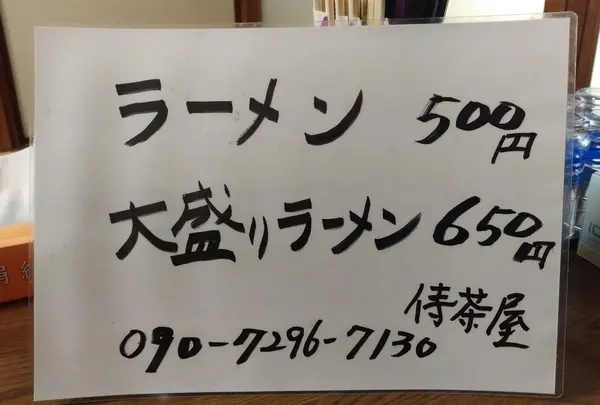 ラーメン 500円
大盛りラーメン 650円
侍茶屋
090-7296-7130